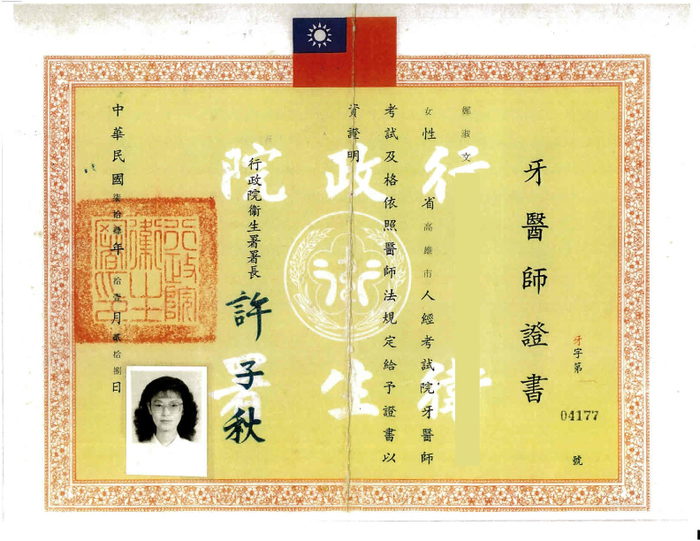 牙醫師證書
牙字第
04177
號
鄭淑文
女性 省高雄市人經考試院牙醫師
考試及格依照醫師法規定給予證書以
資證明
行政院衛生署署長 許子秋
中華民國柒拾年拾壹月貳拾捌日
行政院
衛生署
行政院衛生署印